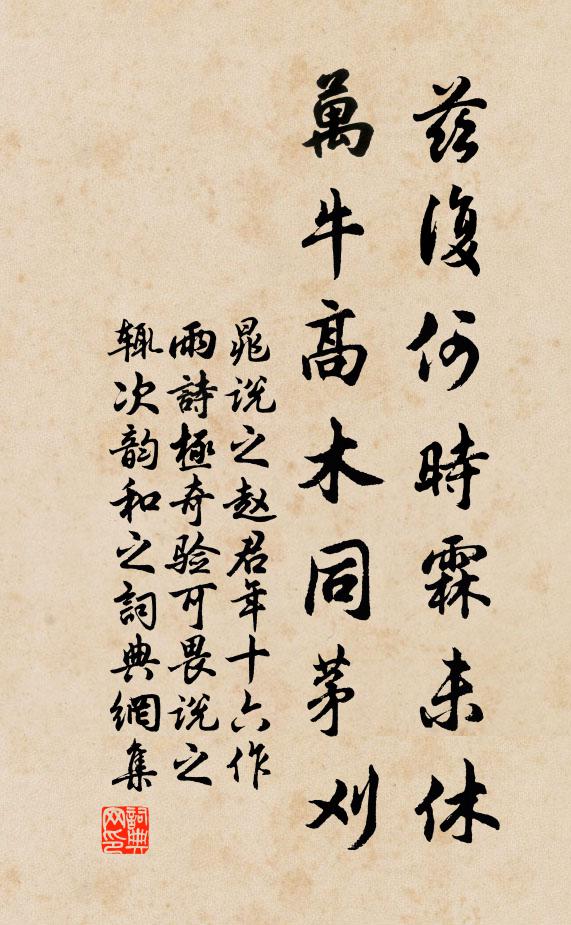 茲復何時霖未休
萬牛高木同茅刈
晁说之赵君年十六作
雨詩極奇验可畏说之
辄次韵和之詞典網集
詞典网印